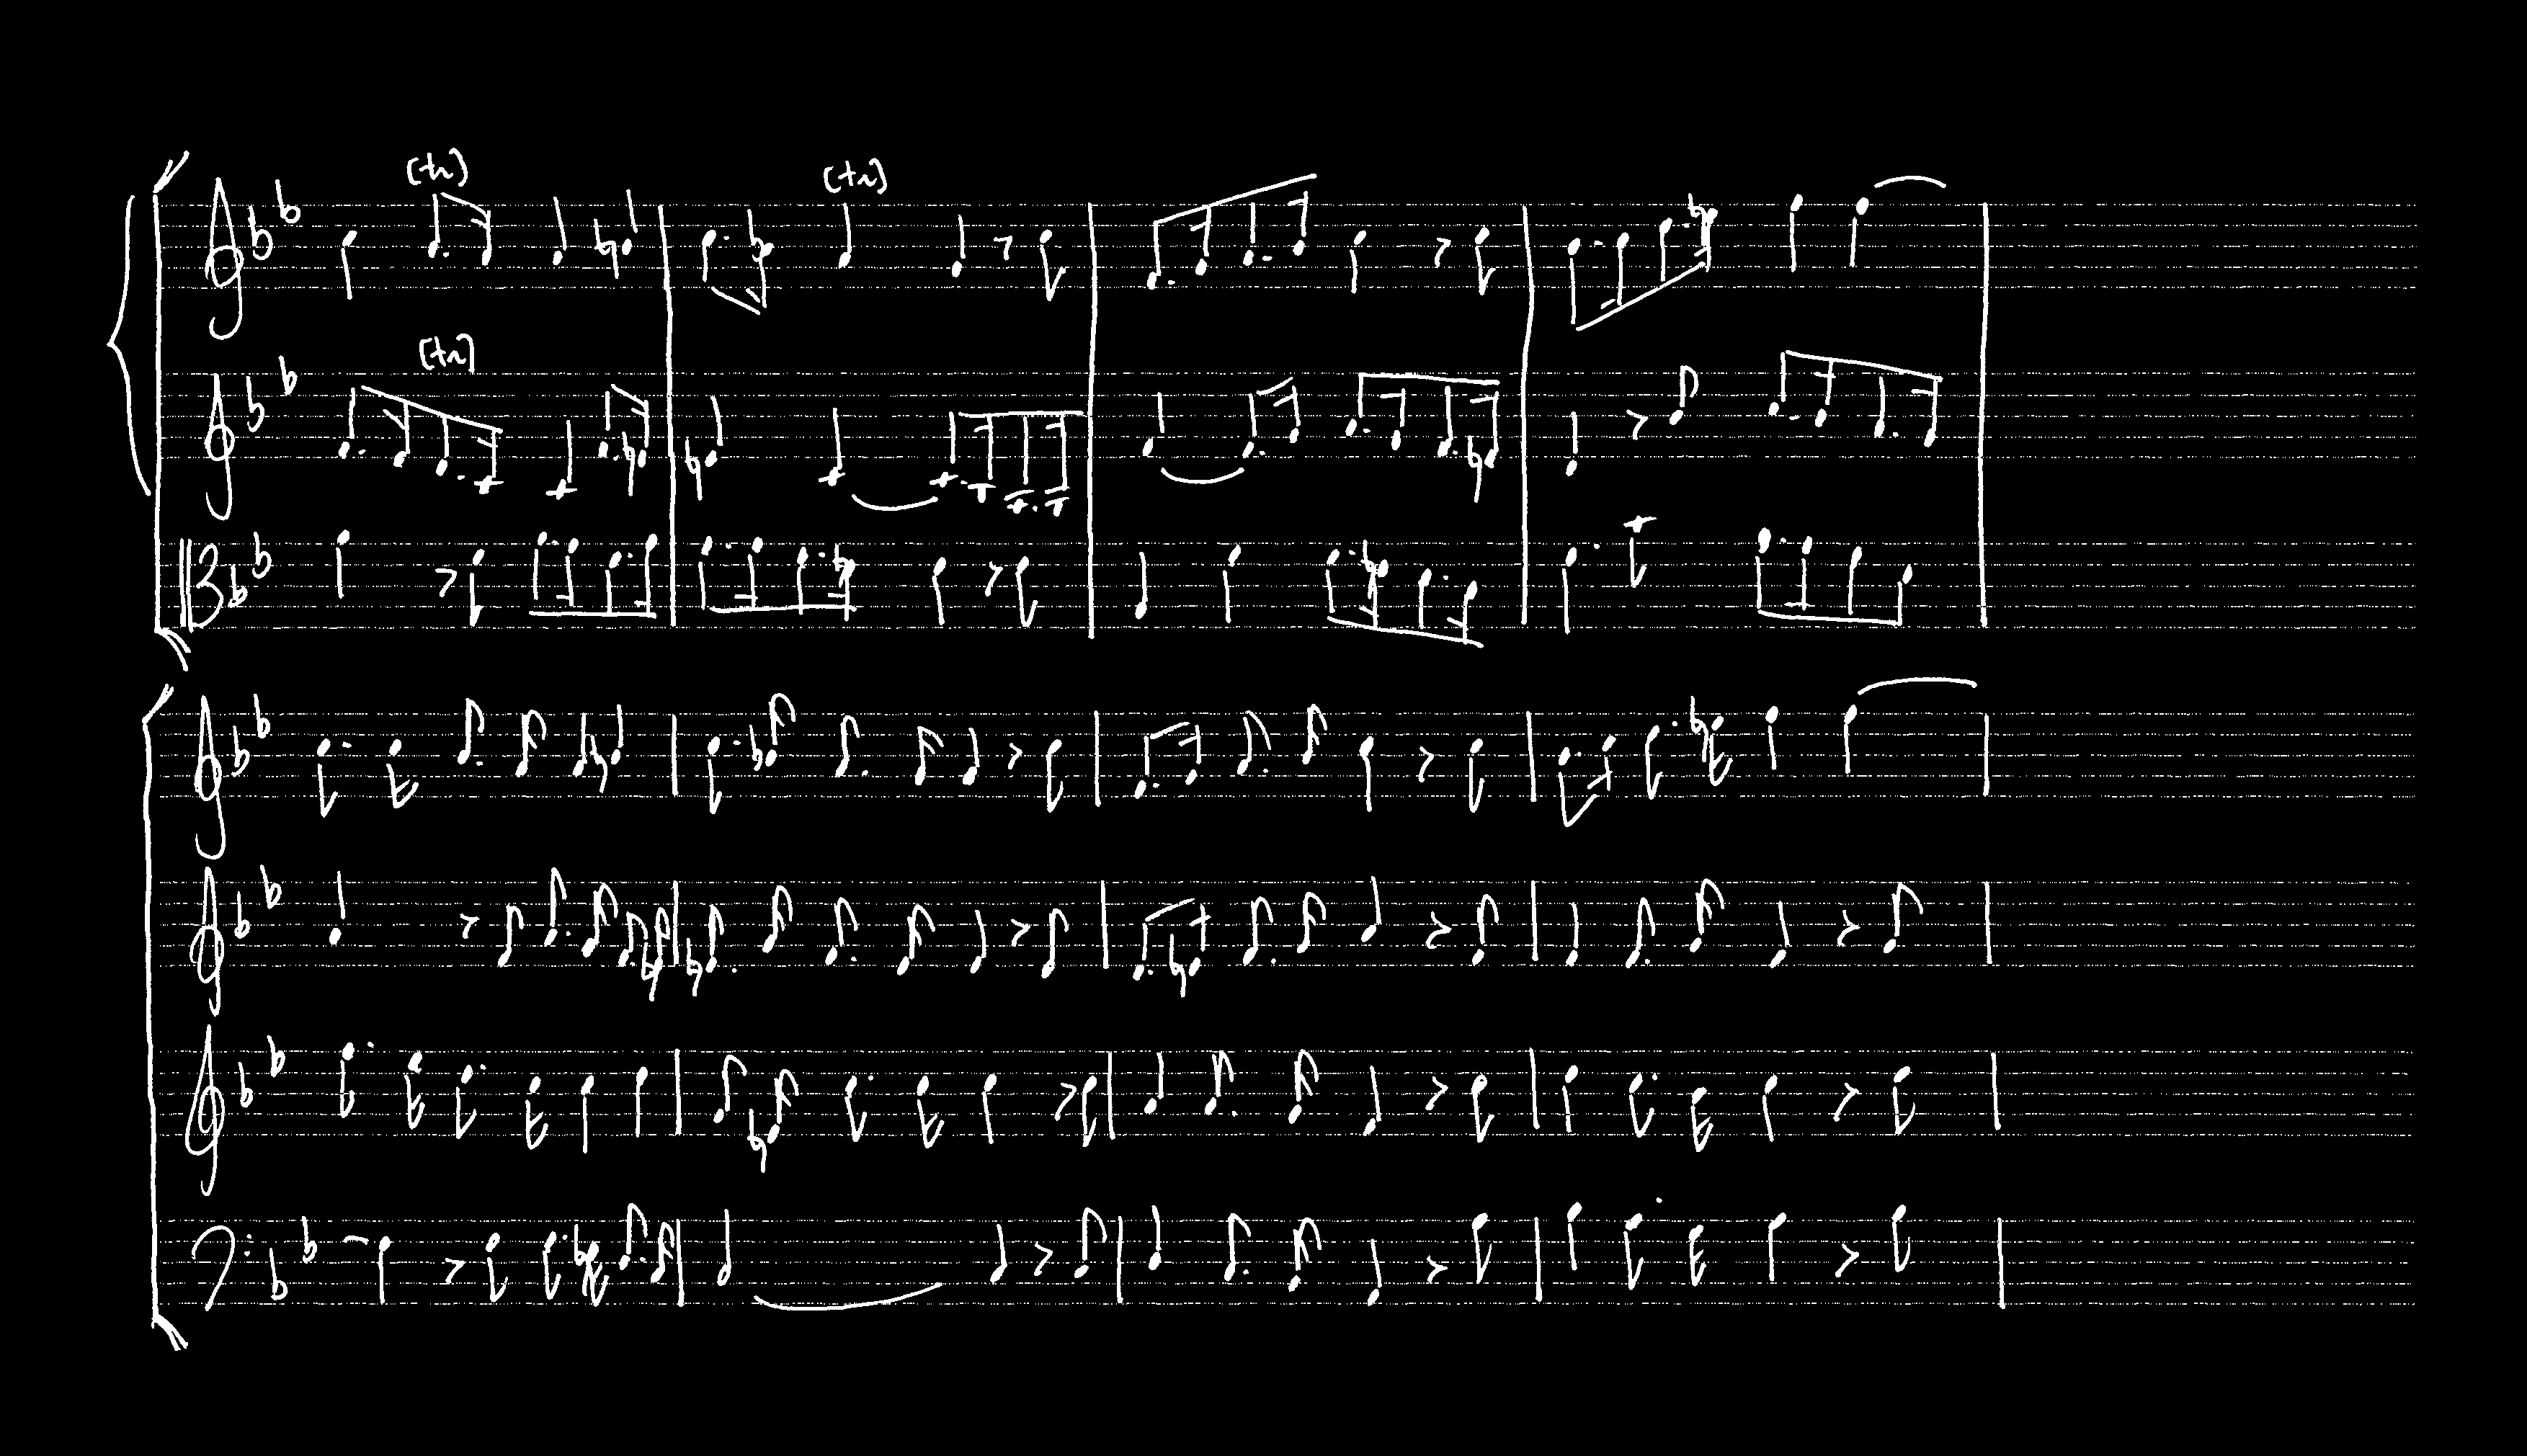 (tr) (tr)
(tr)